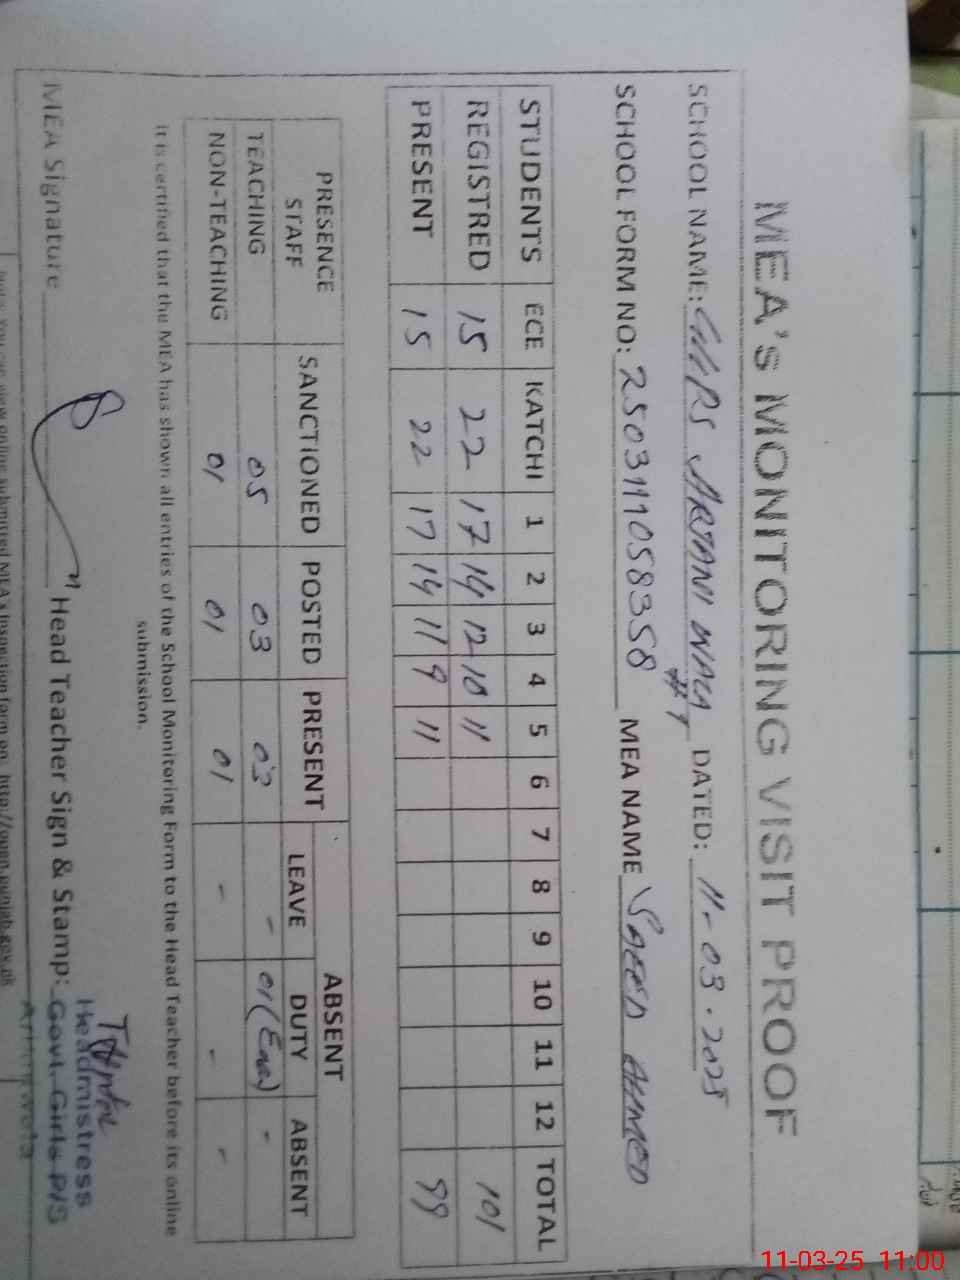 MEA's MONITORING VISIT PROOF
SCHOOL NAME: ARTANI WALA #1 DATED: 11-03-2025
SCHOOL FORM NO: 2503111058358 MEA NAME SAEED AHMED
STUDENTS ECE KATCHI 1 2 3 4 5 6 7 8 9 10 11 12 TOTAL
REGISTRED 15 22 17 14 12 10 11 101
PRESENT 15 22 17 14 11 9 11 99
PRESENCE STAFF SANCTIONED POSTED PRESENT ABSENT
LEAVE DUTY ABSENT
TEACHING 05 03 03 - 01 -
NON-TEACHING 01 01 01 - - -
It is certified that the MEA has shown all entries of the School Monitoring Form to the Head Teacher before its online
submission.
MEA Signature Head Teacher Sign & Stamp:
Headmistress
Govt. Girls P/S
Note: You can view online submitted MEA's Inspection form on: http://open.punjab.gov.pk
11-03-25 11:00